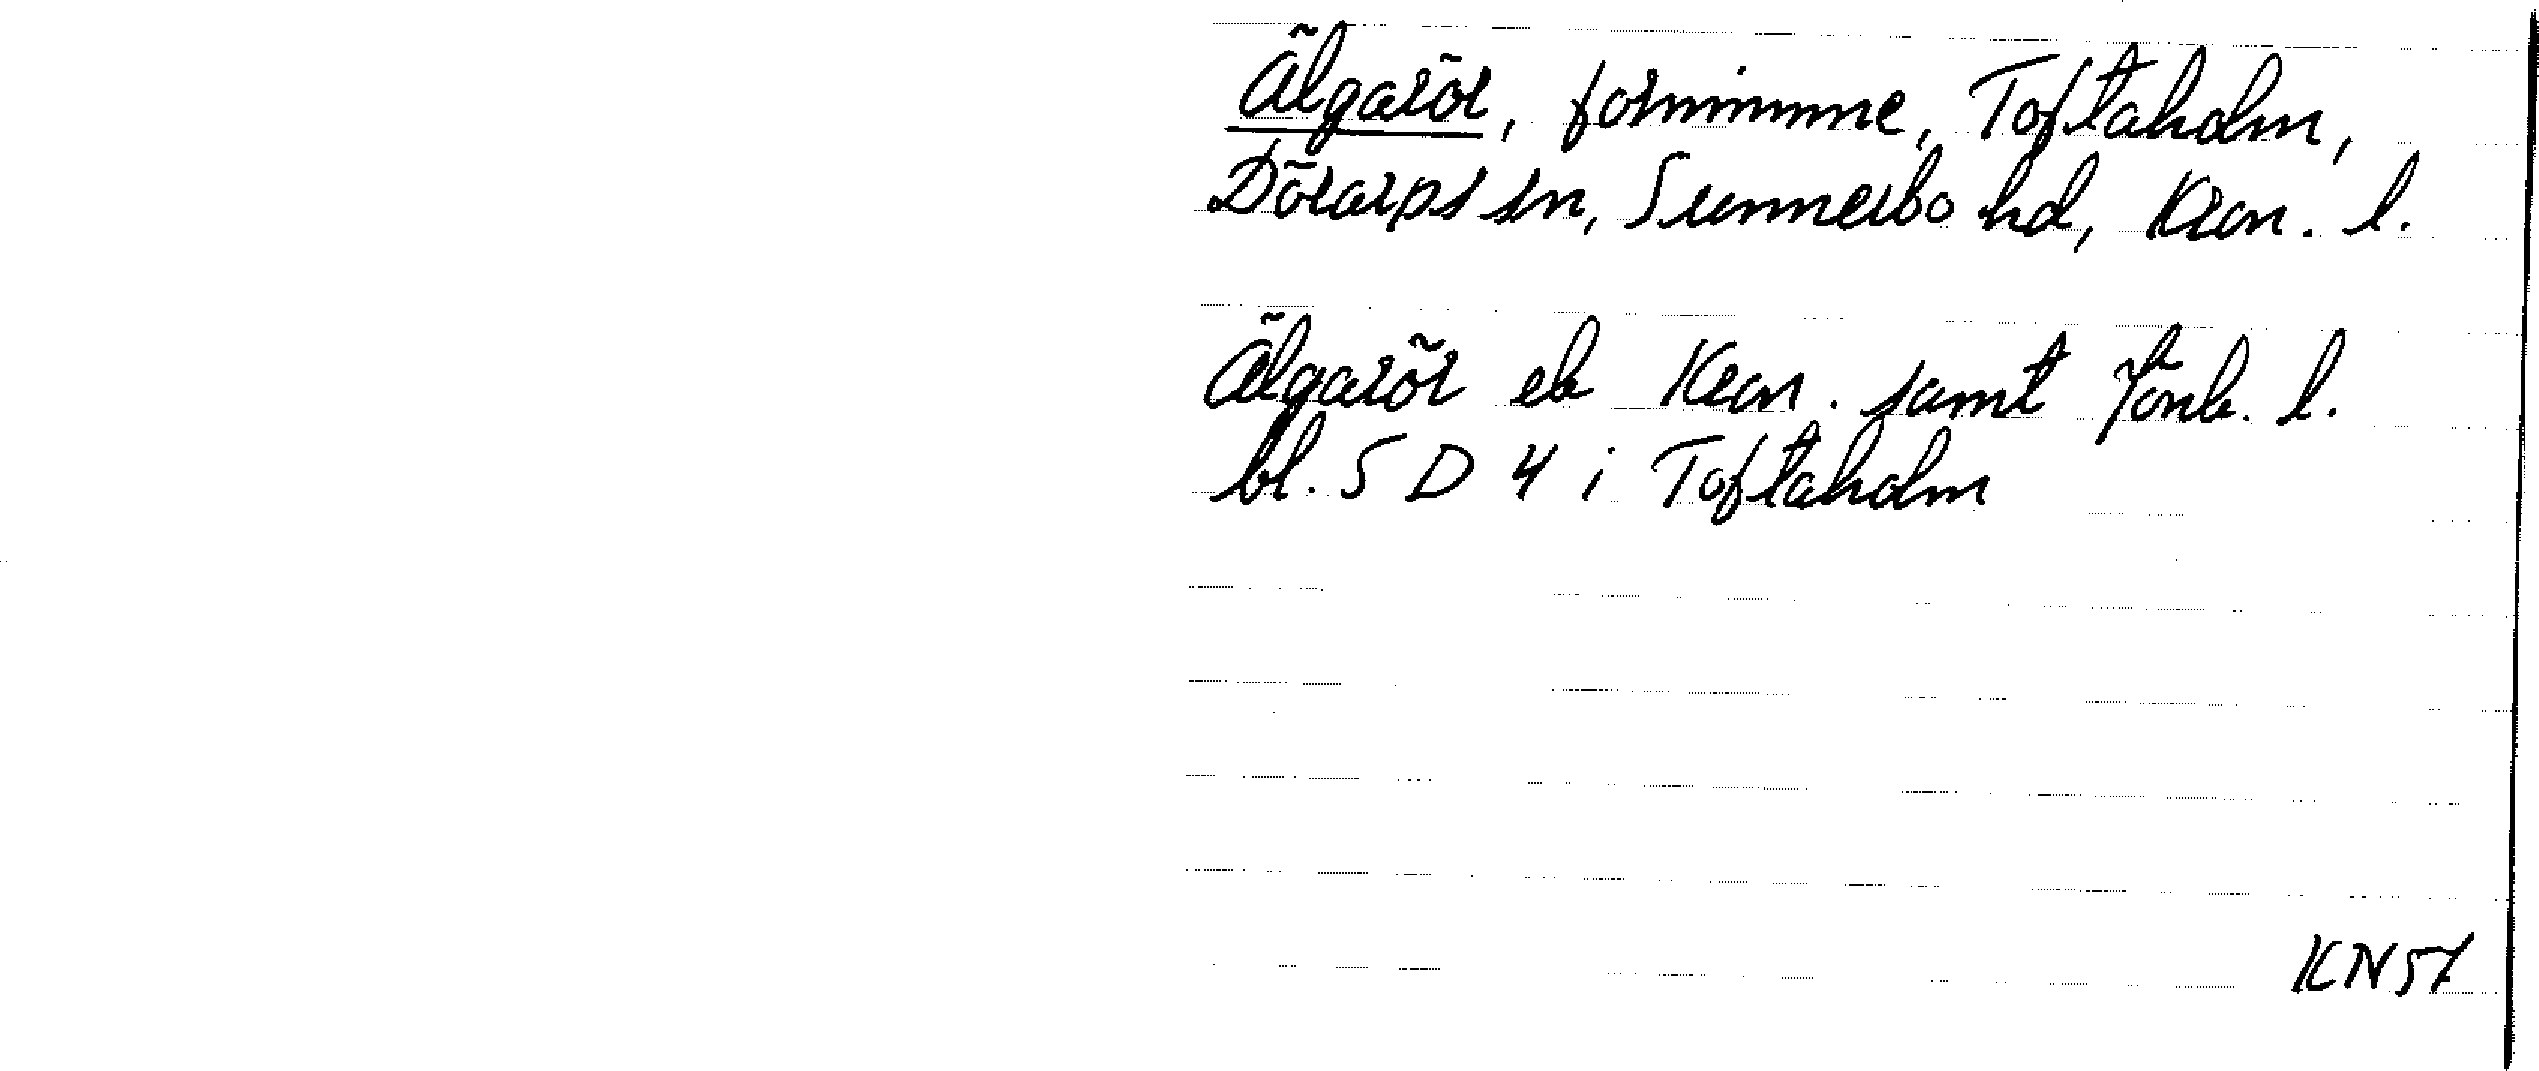 Älgarör, fornminne, Toftaholm,
Dörarps sn, Sunnerbo hd, Kron. l.
Älgarör ek Kron. samt Jönk. l.
bl. 5 D 4 i Toftaholm
KN57